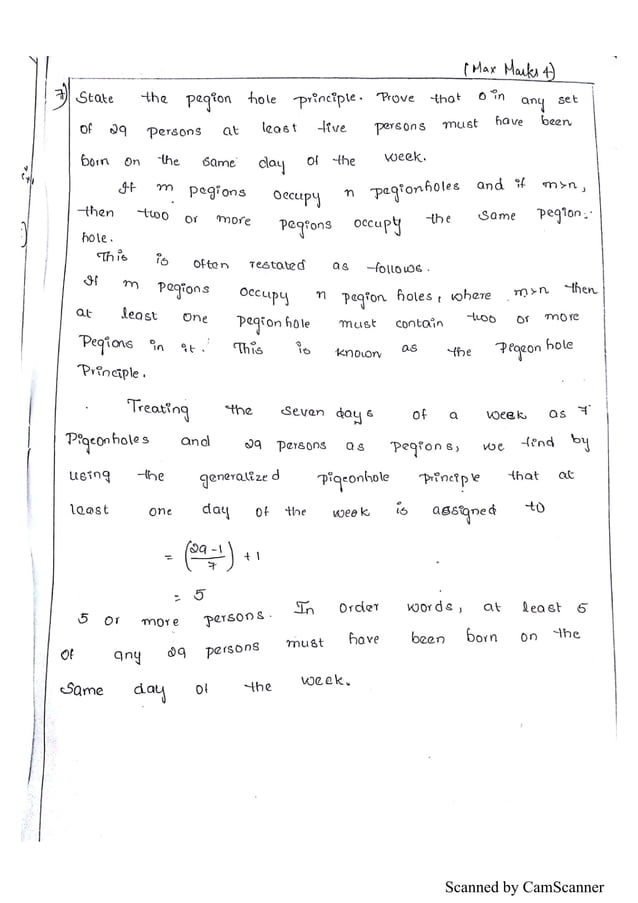 (Max Marks 4)
7) State the pegion hole principle. Prove that in any set
of 29 persons at least five persons must have been
born on the same day of the week.
If m pegions occupy n pegionholes and if m>n,
then two or more pegions occupy the same pegion-
hole.
This is often restated as follows.
If m pegions occupy n pegion holes, where m>n then
at least one pegionhole must contain two or more
Pegions in it. This is known as the Pegeonhole
Principle.
Treating the seven days of a week as 7
Pigeonholes and 29 persons as pegions, we find by
using the generalized pigeonhole principle that at
least one day of the week is assigned to
= (29-1/7) + 1
= 5
5 or more persons. In order words, at least 5
of any 29 persons must have been born on the
same day of the week.
Scanned by CamScanner